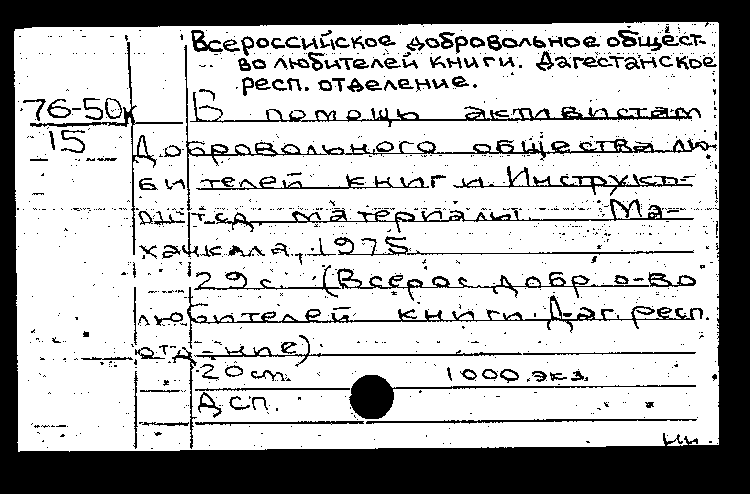 Всероссийское добровольное общест-
во любителей книги. Дагестанское
респ. отделение.
76-50к
15
В помощь активистам
Добровольного общества лю-
бителей книги. Инструкт-
материалы. Ма-
хачкала, 1975.
29 с. (Всерос. добр. о-во
любителей книги. Даг. респ.
отд-ние).
20 см. 1000 экз.
ДСП.